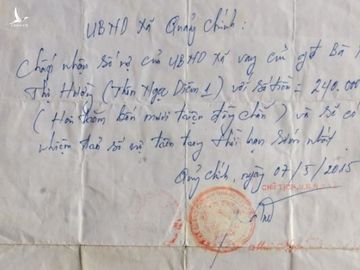 UBND xã Quảng Chính:
Chấp nhận số nợ của UBND xã vay của gđ Bà
Thị Hường (Thôn Ngọc Diêm 1) với số tiền = 240.000
(Hai trăm bốn mươi triệu đồng chẵn) và sẽ có
nhiệm trả số nợ tồn trong thời hạn sớm nhất
Quảng Chính, ngày 07/5/2015
CHỦ TỊCH